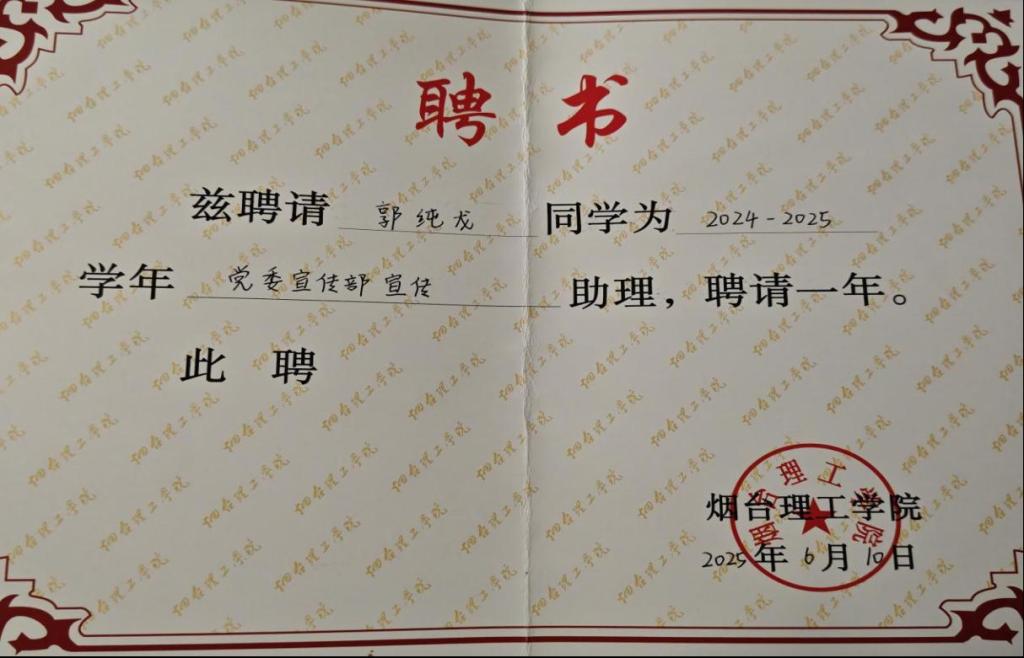 聘书
兹聘请 郭纯龙 同学为 2024-2025
学年 党委宣传部宣传 助理，聘请一年。
此聘
烟台理工学院
烟台理工学院
2025年6月10日